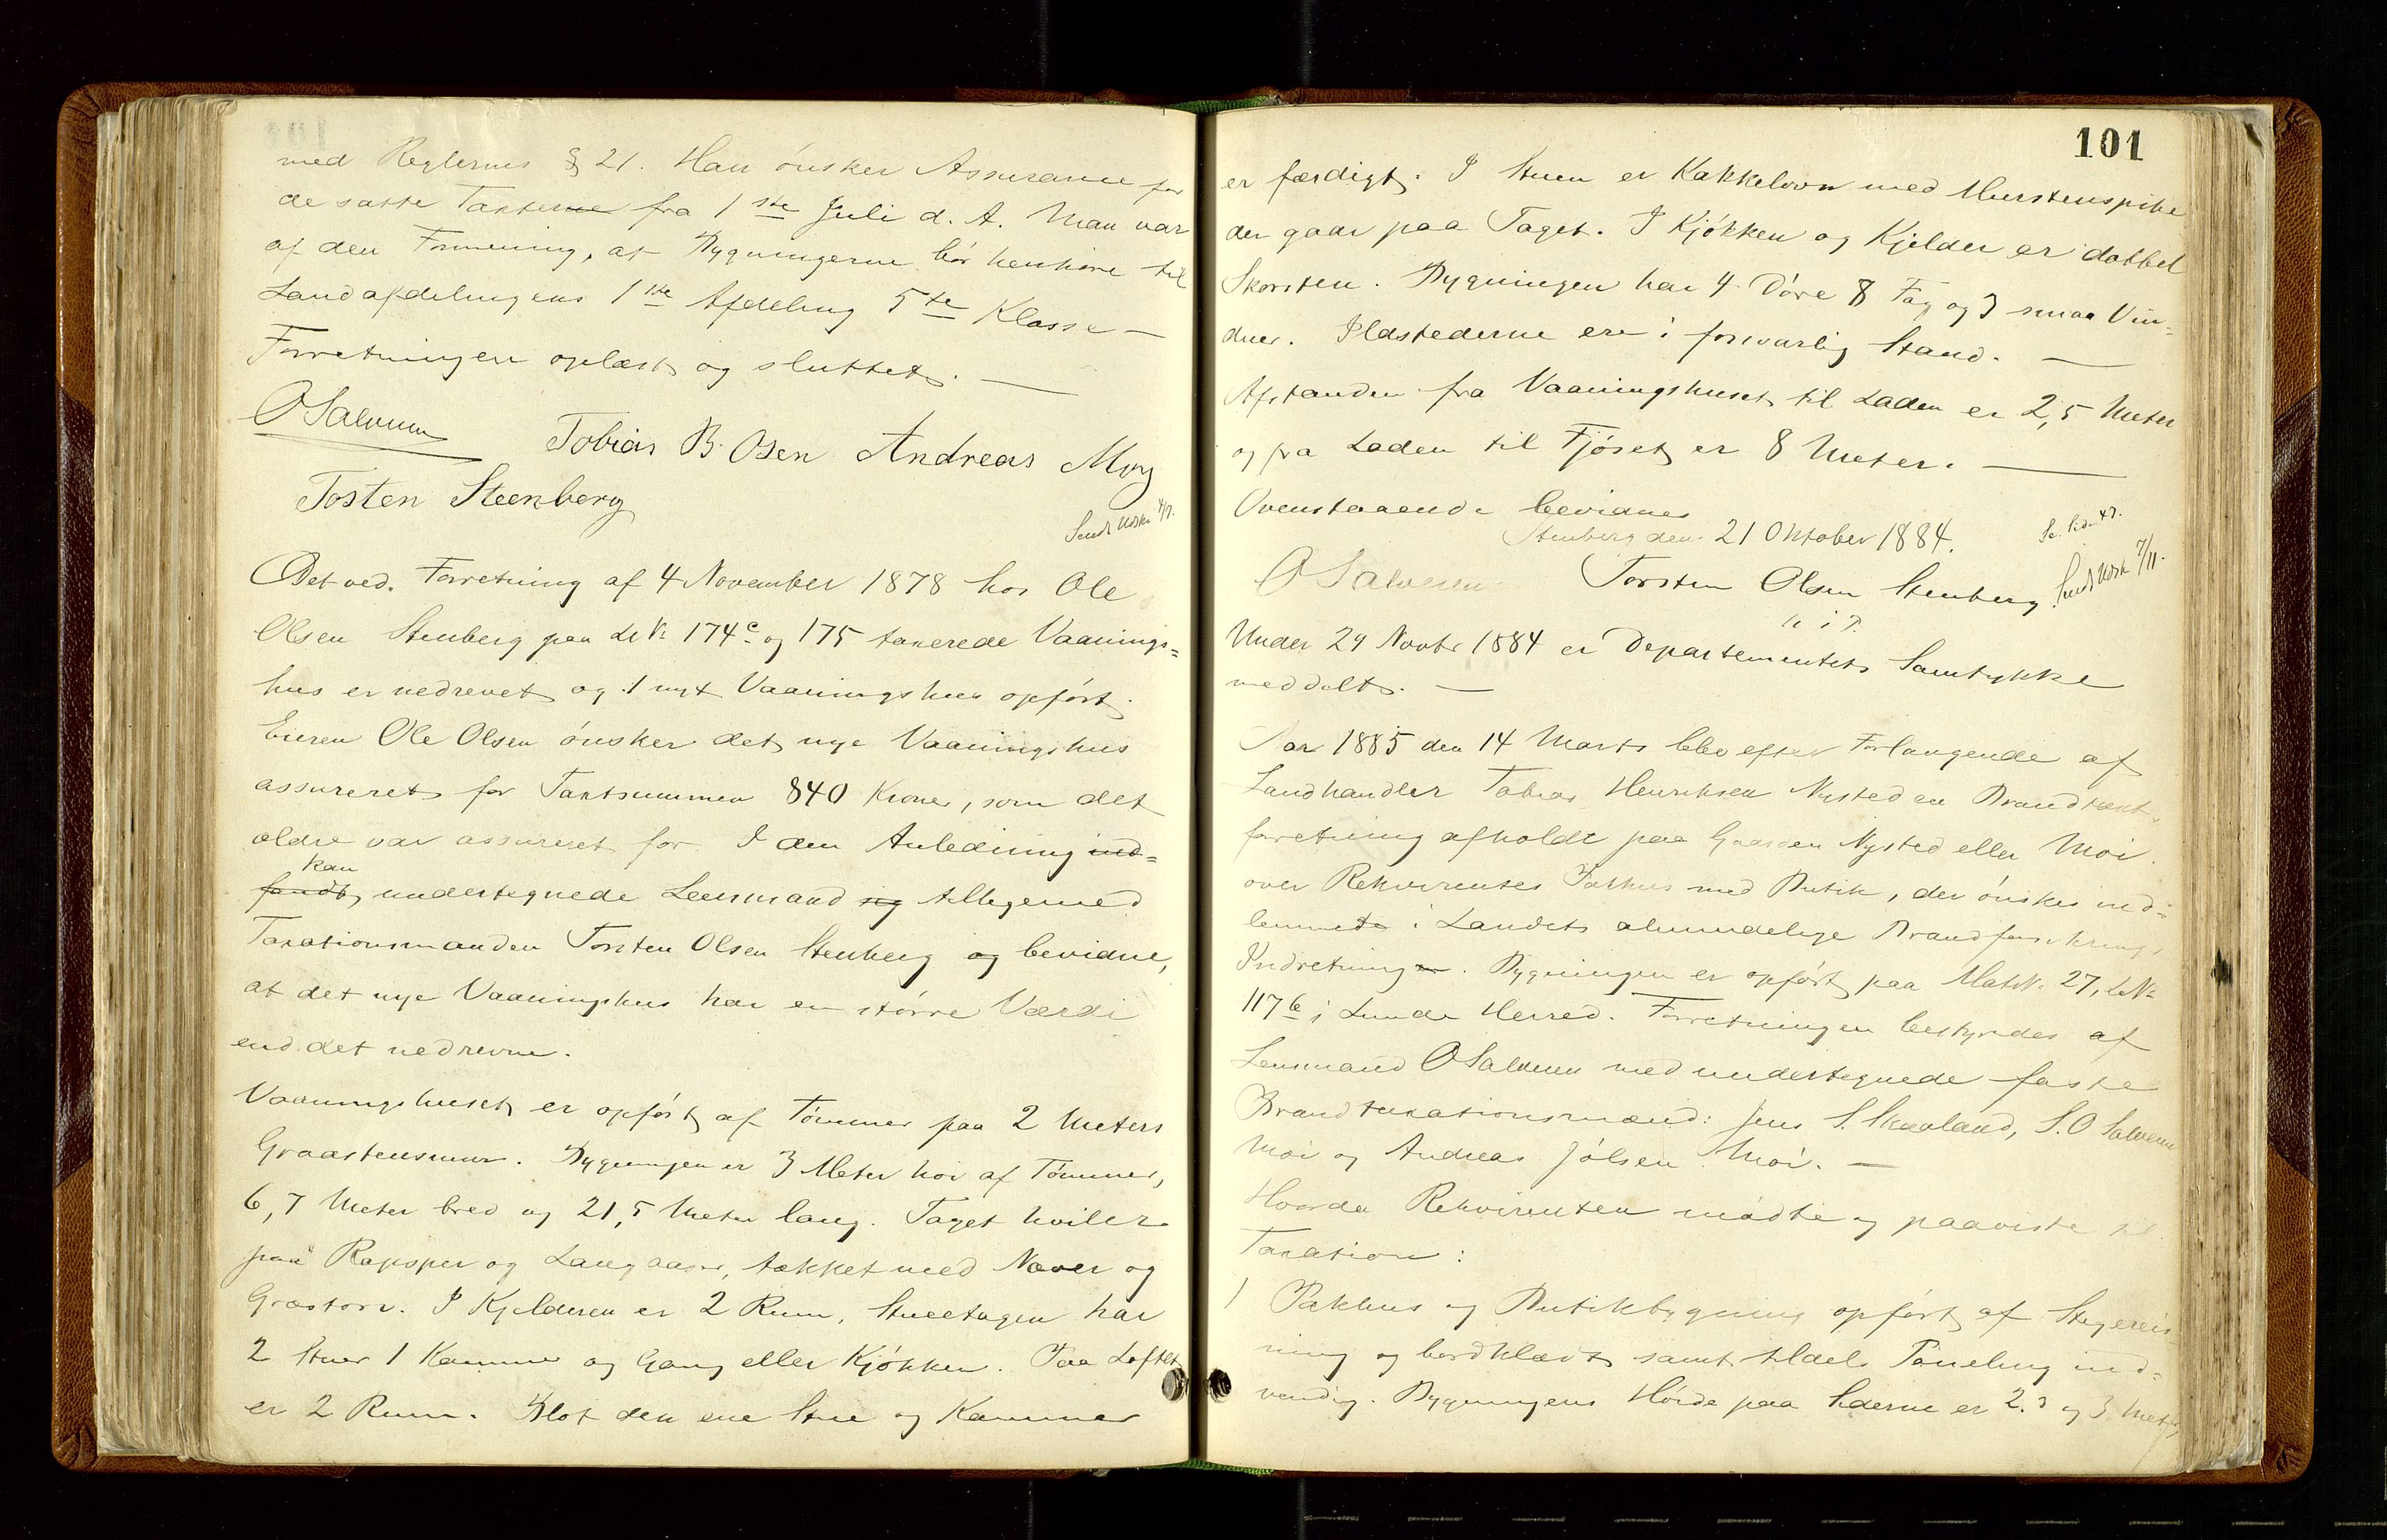 med Reglernes § 21. Han ønsker Assurance for
de satte Taxter fra 1ste Juli d. A. Man var
af den Formening, at Bygningerne bør henhøre til
Landafdelingens 1ste Afdeling 5te Klasse —
Forretningen oplæst og sluttet. —
O Salvesen Tobias B. Osen Andreas Moy
Tosten Steenberg
Sendt Udskr 4/7.
Det ved Forretning af 4 November 1878 hos Ole
Olsen Stenberg paa LNr 174c og 175 taxerede Vaanings=
hus er nedrevet og 1 nyt Vaaningshus opført.
Eieren Ole Olsen ønsker det nye Vaaningshus
assureret for Taxtsummen 840 Kroner, som det
ældre var assureret for. I den Anledning ind=
kan
fandt undertegnede Lensmand sig tilligemed
Taxationsmanden Torsten Olsen Stenberg og bevidne,
at det nye Vaaningshus har en større Værdi
end det nedrevne.
Vaaningshuset er opført af Tømmer paa 2 Meters
Graastensmur. Bygningen er 3 Meter høi af Tømmer,
6,7 Meter bred og 21,5 Meter lang. Taget hviler
paa Rapsper og Langaaser, tækket med Næver og
Græstorv. I Kjelderen er 2 Rum, Stueetagen har
2 Stuer 1 Kammer og Gang eller Kjøkken. Paa Loftet
er 2 Rum. Blot den ene Stue og Kammer
101
er færdigt. I Stuen er Kakkelovn med Murstenspibe
der gaar paa Taget. I Kjøkken og Kjelder er dobbel
Skorsten. Bygningen har 4 Døre 8 Fag og 3 smaa Vin=
duer. Ildstederne ere i forsvarlig Stand. —
Afstanden fra Vaaningshuset til Laden er 2,5 Meter
og fra Laden til Fjøset er 8 Meter. —
Ovenstaaende bevidnes
Stenberg den 21 Oktober 1884.
Se Side 47.
O Salvesen Torsten Olsen Stenberg
Sendt Udskr 7/11.
Under 29 Novbr 1884 er Departementets Samtykke
meddelt. —
Aar 1885 den 14 Marts blev efter Forlangende af
Landhandler Tobias Henriksen Nysted en Brandtaxt-
forretning afholdt paa Gaarden Nysted eller Moi
over Rekvirentens Pakhus med Butik, der ønskes ind=
lemmet i Landets almindelige Brandforsikrings
Indretning. Bygningen er opført paa MatrN. 27, LNr
117b i Lunde Herred. Forretningen bestyredes af
Lensmand O Salvesen med undertegnede faste
Brandtaxationsmænd: Jens S. Skaaland, S. O Salvesen
Moi og Andreas Jølsen Moi. —
Hvorda Rekvirenten mødte og paaviste til
Taxation:
1 Pakhus og Butikbygning opført af Stagereis
ning og bordklædt samt tildels Paneling ind=
vendig. Bygningens Høide paa Siderne er 2.3 og 3 Meter,